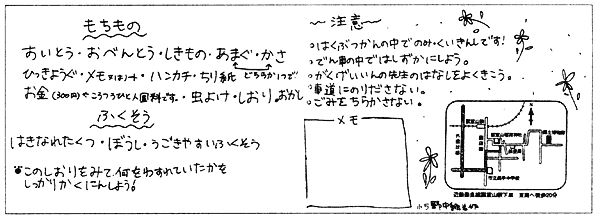 もちもの
すいとう・おべんとう・しきもの・あまぐ・かさ
どちらか1つで
ひっきようぐ・メモ又はノート・ハンカチ・ちり紙
お金(300円)・虫よけ・しおり・おかし
ふくそう
はきなれたくつ・ぼうし・うごきやすいふくそう
このしおりをみて何をわすれていたかを
しっかりかくにんしよう!
〜注意〜
・はくぶつかんの中でのみ・くいきんです!
・でん車の中ではしずかにしよう。
・がくげいいんの先生のはなしをよくきこう。
・車道にのりださない。
・ごみをちらかさない。
メモ